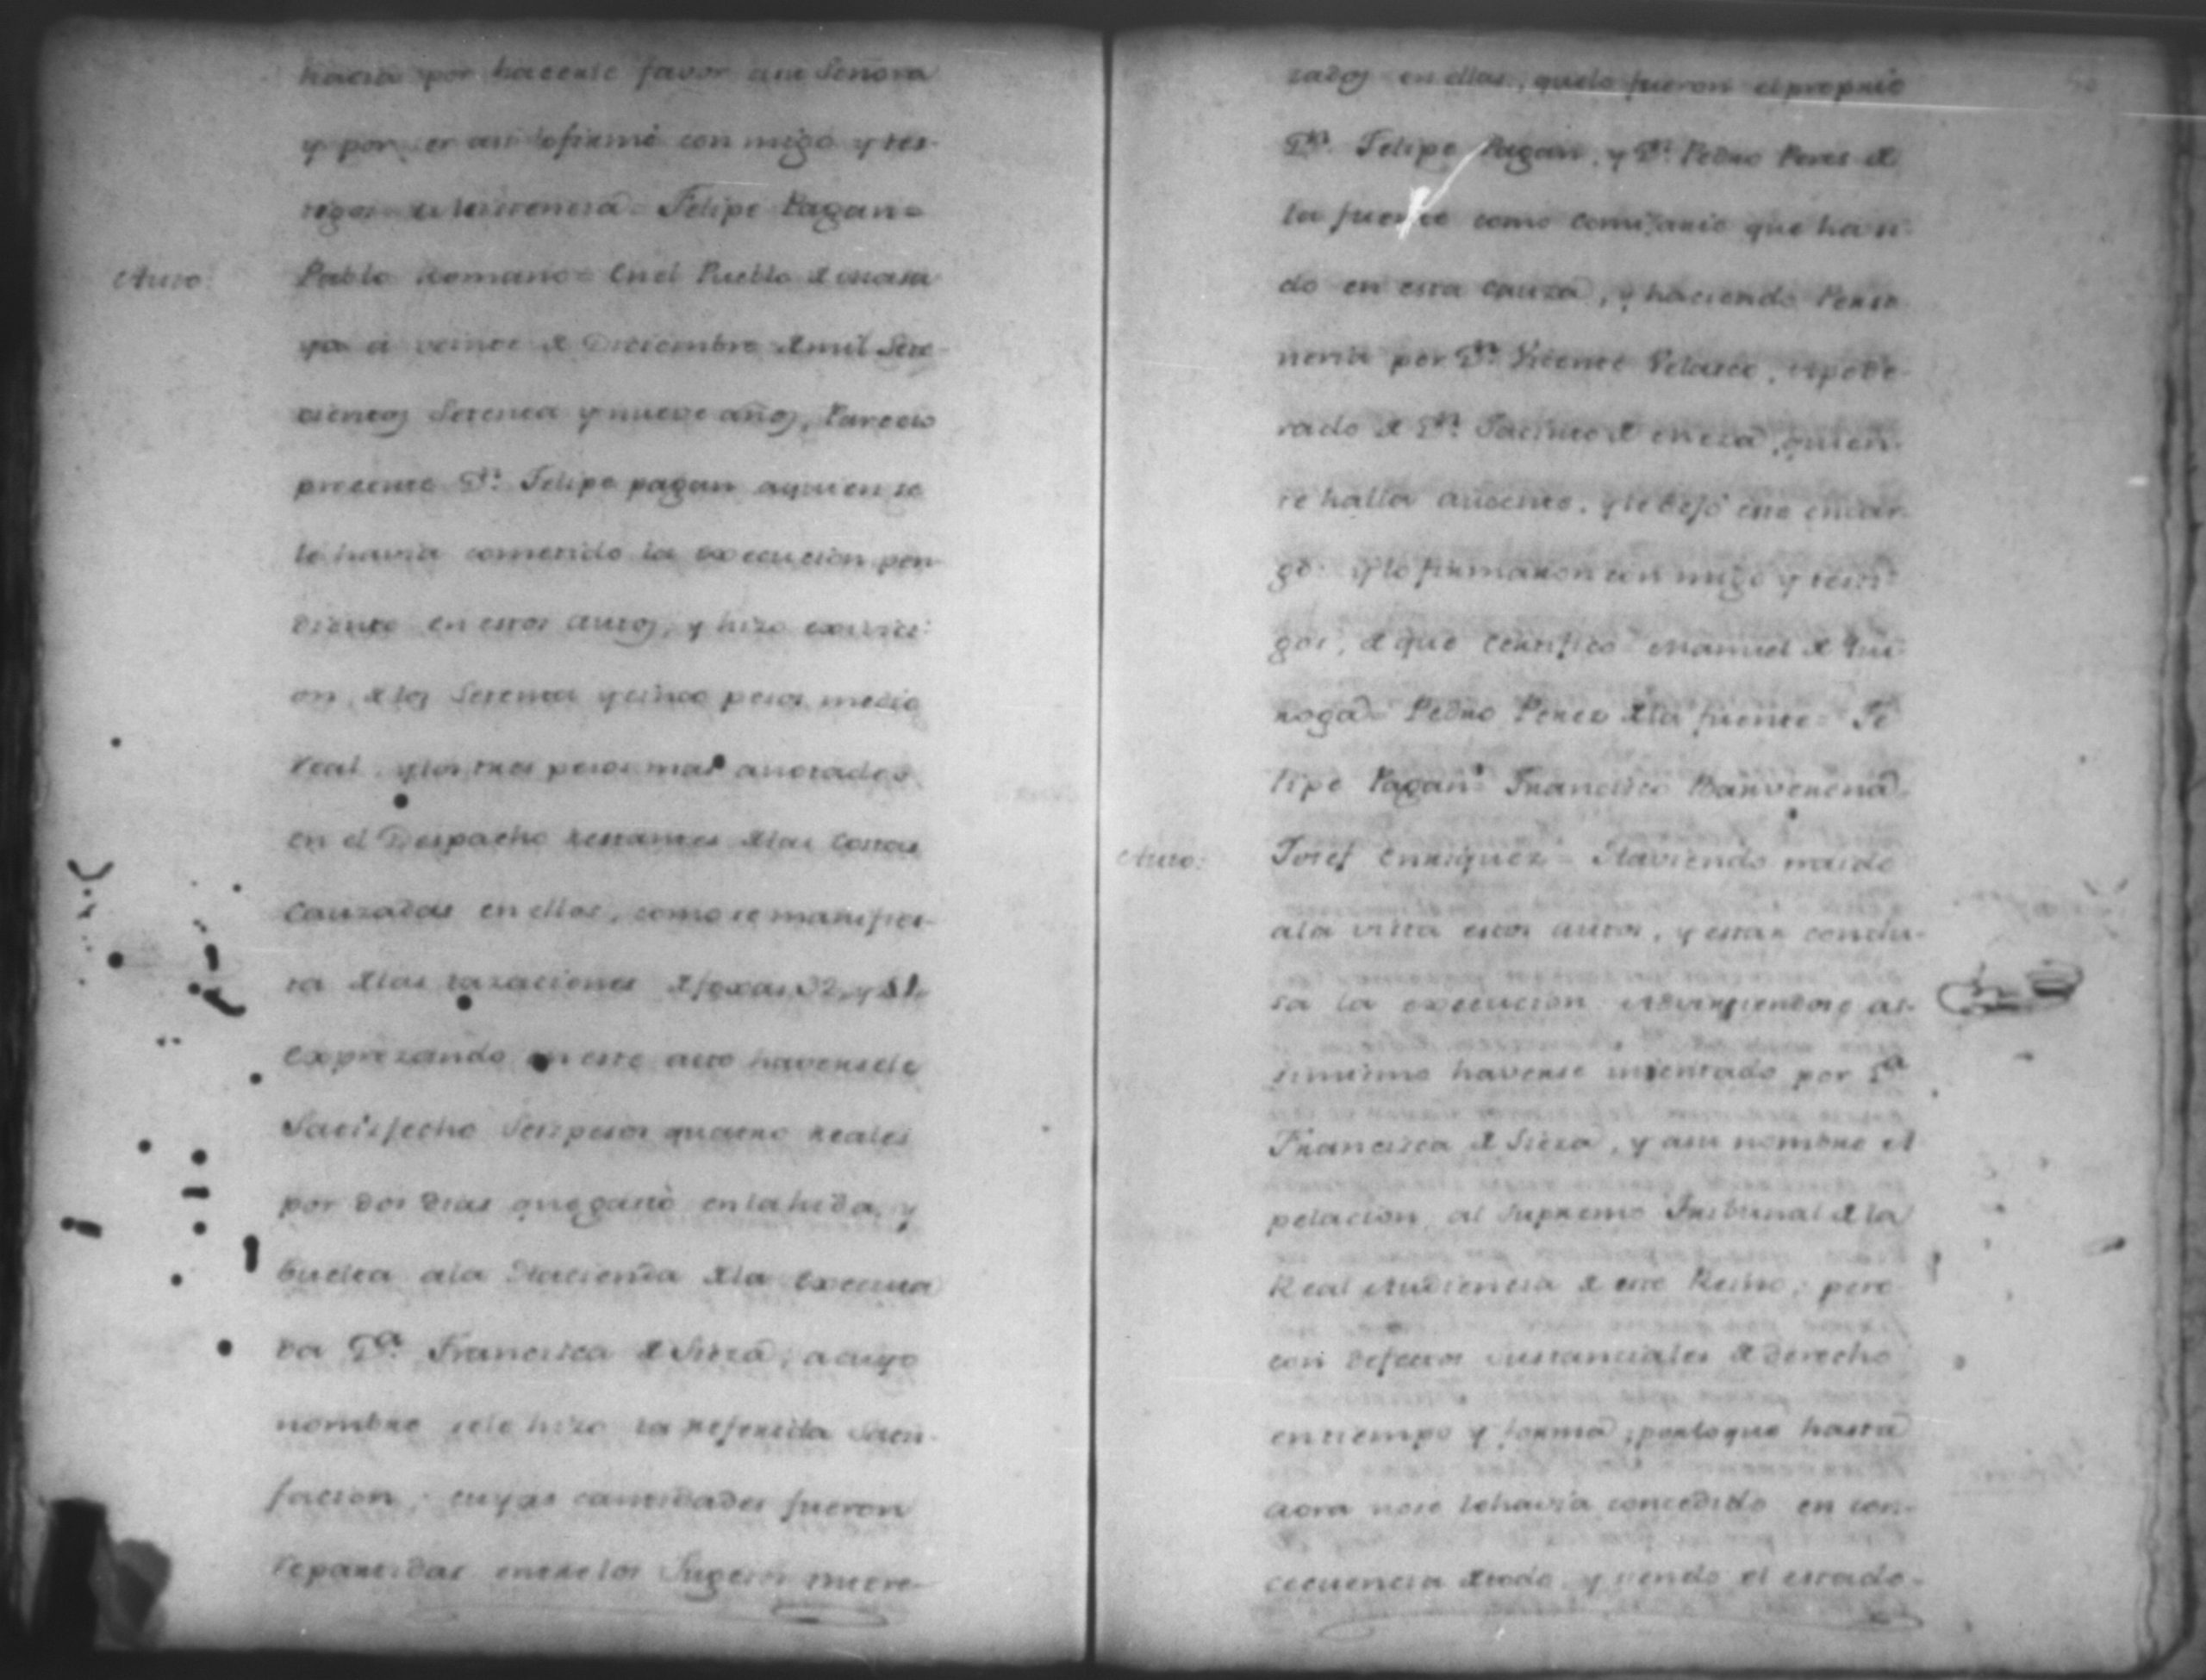 hacia por hacerle favor a su Señora
y por ser asi lo firmó con migo y tes-
tigos Felipe Pagan =
Auto: Pablo Romano = En el Pueblo de
ya a veinte de Diciembre de mil Sete-
cientos Setenta y nueve años, Parecio
presente Dn. Felipe pagan aquien se
le havia cometido la execucion pen-
diente en estos autos, y hizo exivici-
on, de los Setenta y cinco pesos medio
Real, y los tres pesos mas anotados
en el Despacho restantes de las Costas
Cauzadas en ellos, como se manifies-
ta de las tazaciones de foxas 32, y 51.
Exprezando en este auto haversele
Satisfecho Seis pesos quatro reales
por dos dias que gastó en la hida, y
buelta a la Hacienda de la Executa
da Da. Francisca de Sieza, a cuyo
nombre se le hizo la referida Satis-
facion; cuyas cantidades fueron
repartidas entre los Sugetos intere-
zados en ellas, que lo fueron el proprio
Dn. Felipe Pagan, y Dn. Pedro Peres de
la fuente como Comisario que ha si-
do en esta cauza, y haciendo Perso
neria por Dn. Vicente Velasco, Apode-
rado de Dn. Jacinto de Meza, quien
se halla ausente, y le dejó este encar-
go: y lo firmaron con migo y testi-
gos, de que Certifico = Manuel de Qui-
roga = Pedro Perez de la fuente = Fe
lipe Pagan = Francisco
Auto: Josef Enriquez = Haviendo traido
a la vista estos autos, y estar conclu-
sa la execucion Advirtiendose al-
simismo haverse intentado por Da.
Francisca de Sieza, y a su nombre A
pelacion, al Supremo Tribunal de la
Real Audiencia de este Reino; pero
con defectos sustanciales de derecho
en tiempo y forma; por lo que hasta
aora no se le havia concedido en con-
cecuencia de todo, y siendo el estado-